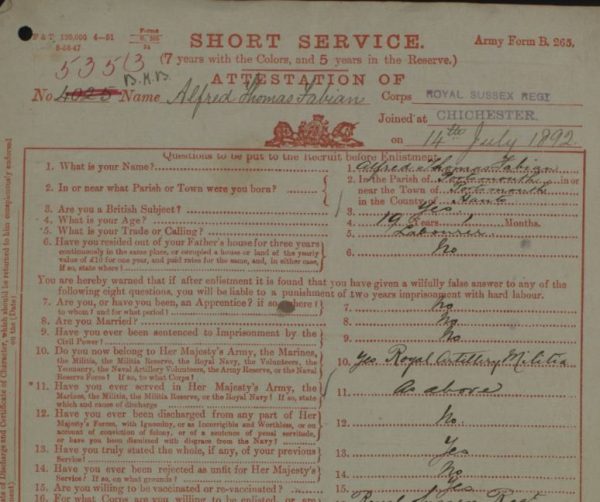 P & T 120,000 4—91 Forms
B. 265
SHORT SERVICE.
Army Form B. 265.
(7 years with the Colors, and 5 years in the Reserve.)
5353
B.H.B
ATTESTATION OF
No. 4025 Name Alfred Thomas Fabian Corps ROYAL SUSSEX REGT
Joined at CHICHESTER.
on 14th July 1892
Questions to be put to the Recruit before Enlistment.
1. What is your Name? 1. Alfred Thomas Fabian
2. In or near what Parish or Town were you born? 2. In the Parish of Portsmouth in or
near the Town of Portsmouth
in the County of Hants
3. Are you a British Subject? 3. Yes
4. What is your Age? 4. 19 Years 1 Months.
5. What is your Trade or Calling? 5. Labourer
6. Have you resided out of your Father's house for three years 6. No
continuously in the same place, or occupied a house or land of the yearly
value of £10 for one year, and paid rates for the same, and, in either case,
if so, state where!
You are hereby warned that if after enlistment it is found that you have given a wilfully false answer to any of the
following eight questions, you will be liable to a punishment of two years imprisonment with hard labour.
7. Are you, or have you been, an Apprentice? if so, where! 7. No
to whom! and for what period!
8. Are you Married? 8. No
9. Have you ever been sentenced to Imprisonment by the 9. No
Civil Power!
10. Do you now belong to Her Majesty's Army, the Marines, 10. Yes Royal Artillery Militia
the Militia, the Militia Reserve, the Royal Navy, the Volunteers, the
Yeomanry, the Naval Artillery Volunteers, the Army Reserve, or the Naval
Reserve Force! If so, to what Corps!
*11. Have you ever served in Her Majesty's Army, the 11. As above
Marines, the Militia, the Militia Reserve, or the Royal Navy! If so, state
which and cause of discharge
12. Have you ever been discharged from any part of Her 12. No.
Majesty's Forces, with Ignominy, or as Incorrigible and Worthless, or on
account of conviction of felony, or of a sentence of penal servitude,
or have you been dismissed with disgrace from the Navy!
13. Have you truly stated the whole, if any, of your previous 13. Yes
Service!
14. Have you ever been rejected as unfit for Her Majesty's 14. No
Service! If so, on what grounds!
15. Are you willing to be vaccinated or re-vaccinated? 15. Yes
16. For what Corps are you willing to be enlisted, or
Discharge and Certificate of Character, which should be returned to him conspicuously endorsed
on the (Date)